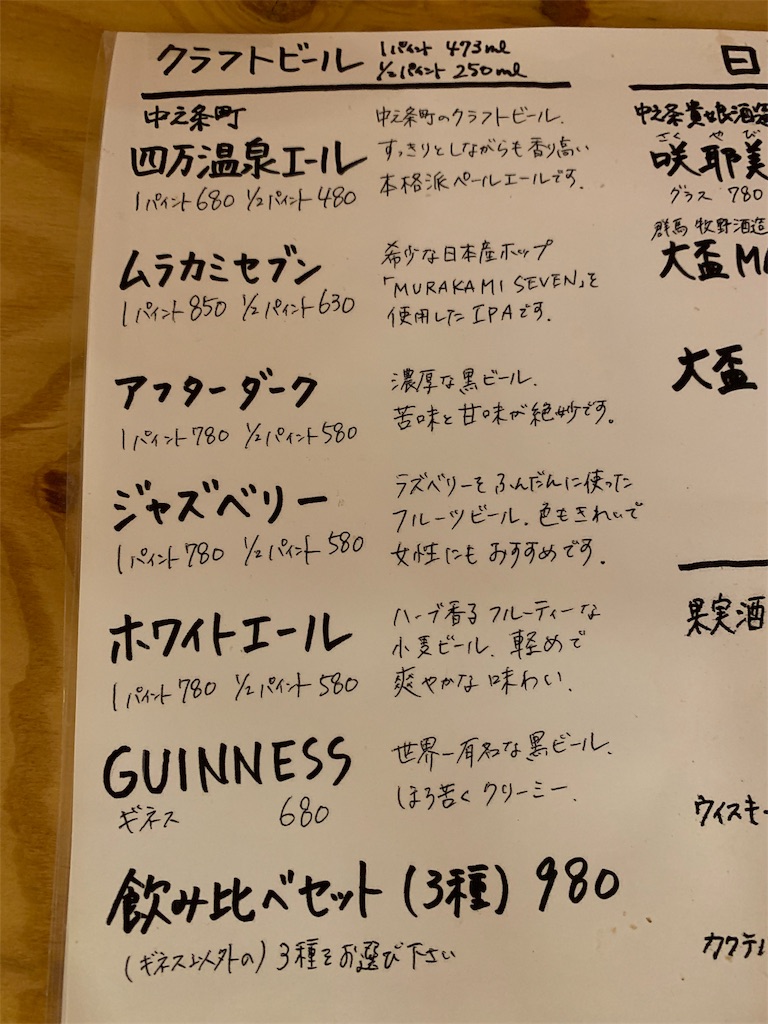 クラフトビール
1パイント 473ml
1/2パイント 250ml
中之条町
四万温泉エール
1パイント 680 1/2パイント 480
中之条町のクラフトビール.
すっきりとしながらも香り高い
本格派ペールエールです.
ムラカミセブン
1パイント 850 1/2パイント 630
希少な日本産ホップ
「MURAKAMI SEVEN」を
使用したIPAです.
アフターダーク
1パイント 780 1/2パイント 580
濃厚な黒ビール.
苦味と甘味が絶妙です。
ジャズベリー
1パイント 780 1/2パイント 580
ラズベリーをふんだんに使った
フルーツビール.色もきれいで
女性にもおすすめです.
ホワイトエール
1パイント 780 1/2パイント 580
ハーブ香るフルーティーな
小麦ビール.軽めで
爽やかな味わい.
GUINNESS
ギネス 680
世界一有名な黒ビール.
ほろ苦くクリーミー.
飲み比べセット(3種) 980
(ギネス以外の)3種をお選び下さい
日
中之条貴娘酒造
さくやび
咲耶美
グラス 780
群馬 牧野酒造
大盃 M
大盃
果実酒
ウイスキー
カクテル